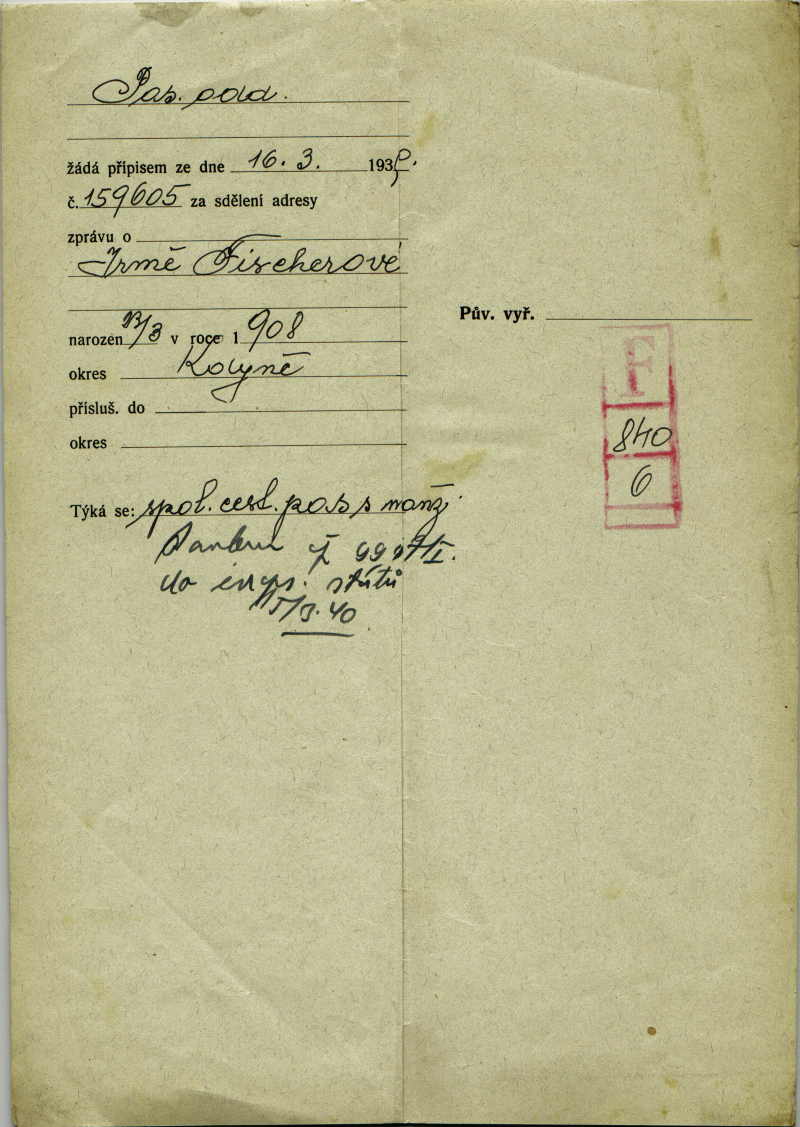 Pas. odd.
žádá přípisem ze dne 16. 3. 1939.
č. 159605 za sdělení adresy
zprávu o
Irmě Fischerové
narozen 13/3 v roce 1908
okres Kolyně
přísluš. do
okres
Týká se: spol. cest. pas s manž.
do evrps. států
40
Pův. vyř.
F
840
6